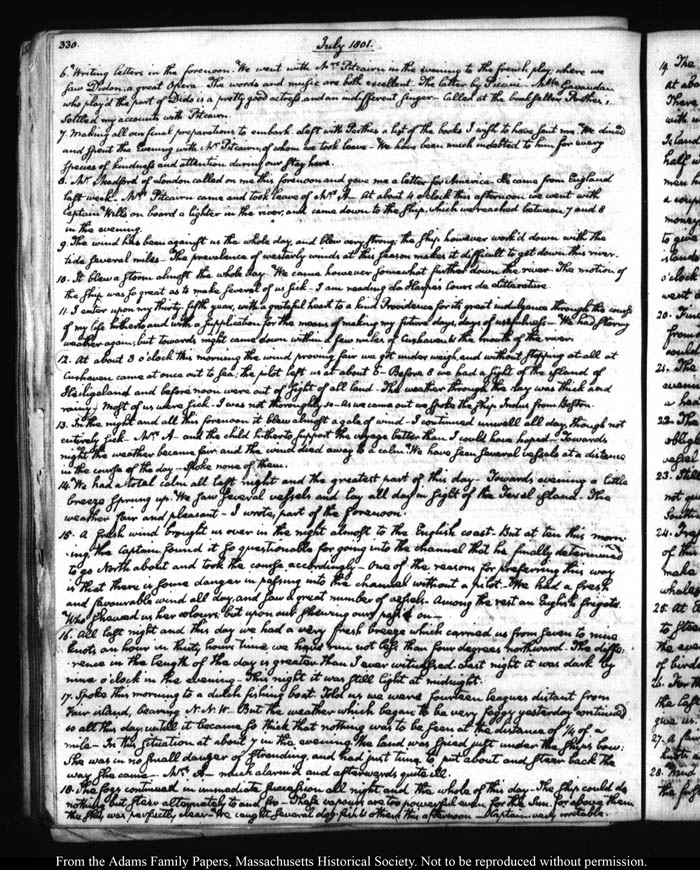 330.
July 1801.
6. Writing letters in the forenoon. We went with Mrs Pitcairn in the evening to the french play, where we
saw Didon, a great Opera. The words and music are both excellent. The latter by Piccini. Mlle
who play'd the part of Dido is a pretty good actress and an indifferent singer. Called at the bookseller Perthes's,
settled my accounts with Pitcairn.
7. Making all our final preparations to embark. Left with Perthes a list of the books I wish to have sent me. We dined
and spent the Evening with Mr Pitcairn, of whom we took leave. We have been much indebted to him for every
species of kindness and attention during our stay here.
8. Mr Medford of London called on me this forenoon and gave me a letter for America. He came from England
last week. Mrs Pitcairn came and took leave of Mrs A. At about 4 o'clock this afternoon we went with
Captain Wills on board a lighter in the river; and came down to the ship, which we reached between 7 and 8
in the evening.
9. The wind has been against us the whole day, and blew very strong; the ship however work'd down with the
tide several miles. The prevalence of westerly winds at this season makes it difficult to get down this river.
10. It blew a storm almost the whole day. We came however somewhat further down the river. The motion of
the ship was so great as to make several of us sick. I am reading La Harpe's Cours de Litterature.
11. I enter upon my thirty-fifth year, with a grateful heart to a kind Providence for its great indulgence through the course
of my life hitherto and with a supplication for the means of making my future days, days of usefulness. We had stormy
weather again; but towards night came down within a few miles of Cuxhaven & the mouth of the river.
12. At about 3 o'clock this morning the wind proving fair we got under weigh, and without stopping at all at
Cuxhaven came at once out to sea; the pilot left us at about 6. Before 8 we had a sight of the island of
Heiligeland and before noon were out of sight of all land. The weather through the day was thick and
rainy. Most of us were sick. I was not thoroughly so. As we came out we spoke the ship Indus from Boston.
13. In the night and all this forenoon it blew almost a gale of wind. I continued unwell all day, though not
entirely sick. Mrs A. and the child hitherto support the voyage better than I could have hoped. Towards
night the weather became fair and the wind died away to a calm. We have seen several vessels at a distance
in the course of the day. Spoke none of them.
14. We had a total calm all last night and the greatest part of this day. Towards evening a little
breeze sprung up. We saw several vessels and lay all day in sight of the Texel island. The
weather fair and pleasant. I wrote, part of the forenoon.
15. A fresh wind brought us over in the night almost to the English coast. But at ten this morn-
ing, the Captain found it so questionable for going into the channel that he finally determined
to go North about and took the course accordingly. One of the reasons for preferring this way
is that there is some danger in passing into the channel without a pilot. We had a fresh
and favourable wind all day, and saw a great number of vessels. Among the rest an English frigate.
Who shewed us her colours, but upon our shewing ours pass'd on.
16. All last night and this day we had a very fresh breeze which carried us from seven to nine
knots an hour in thirty hours time we have run not less than four degrees northward. The diffe-
rence in the length of the day is greater than I ever witnessed. Last night it was dark by
nine o'clock in the evening. This night it was still light at midnight.
17. Spoke this morning to a dutch fishing boat. Told us we were fourteen leagues distant from
Fair island, bearing N.N.W. But the weather which began to be very foggy yesterday continued
so all this day, untill it became so thick that nothing was to be seen at the distance of ¼ of a
mile. In this situation at about 7 in the evening the land was spied just under the ship's bow:
She was in no small danger of stranding, and had just time to put about and steer back the
way she came. Mrs A. much alarmed and afterwards quite ill.
18. The fogs continued in immediate succession all night and the whole of this day. The ship could do
nothing but steer alternately to and fro. These vapours are too powerful even for the Sun, for above them
the sky was perfectly clear. We caught several dog-fish & others this afternoon. Captain very irritable.
From the Adams Family Papers, Massachusetts Historical Society. Not to be reproduced without permission.